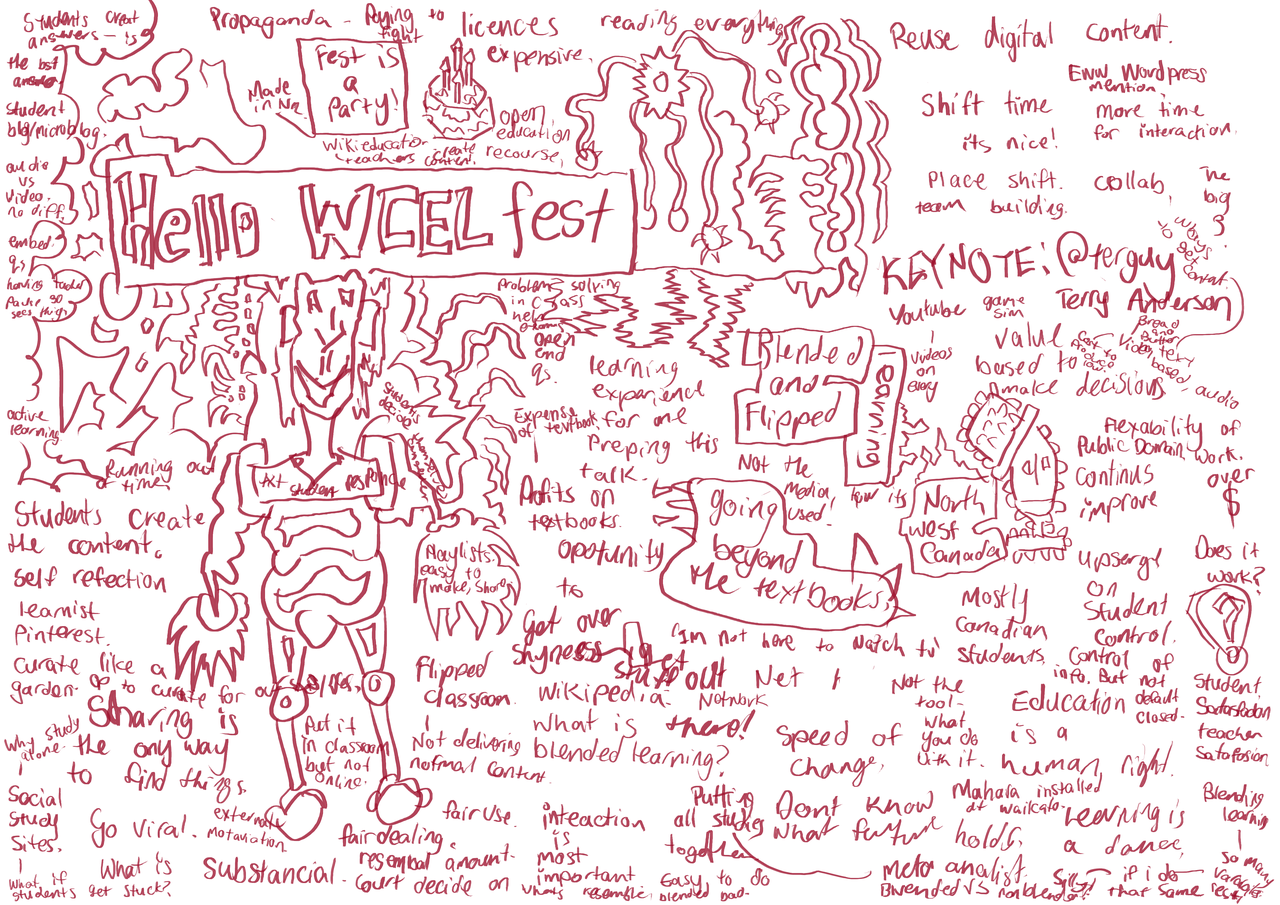 Students creat
answers - is
the bst
answer
student
blog/microblog.
audio
vs
video.
no diff.
embed.
qs
active
learning
Propaganda - Paying to
fight
licences
expensive.
reading everything
Made
in NZ
Fest is
a
Party!
Wikieducator
teachers create
content.
open
education
recourse,
Hello WCEL fest
Reuse digital content.
Eww Wordpress
mention.
Shift time
its nice!
more time
for interaction.
Place shift.
team building.
collab,
The
big
3
ways
to get
content.
KEYNOTE: @terguy
Terry Anderson
Youtube
game
sim
videos
on
value
based to
make decisions
Bread
and
Butter
video, text
based, audio
Problems solving
in class
help
open
end
qs.
learning
experience
for me
Preping this
talk.
Expense
of textbook.
Profits on
textbooks.
opotunity
to
Get over
Shyness
get
stuff out
there!
Students
decide
Running out
of time
txt student responce
Students create
the content.
Self refection
learnist
Pinterest.
curate like a
garden.
Sharing is
the only way
to find things.
Why study
alone.
Social
Study
Sites.
What if
students get stuck?
Go viral.
What is
Substancial.
Playlists.
easy to
make, share
Put it
in classroom
but not
online.
Flipped
classroom.
Not delivering
normal content.
Wikipedia.
What is
blended learning?
fair use.
fair dealing.
resembal amount.
Court decide on
whats resemble.
inteaction
is
most
important
Easy to do
blended bad.
Blended
and
Flipped
learning
Not the
media,
how its
used!
going
beyond
the textbooks.
North
west
Canada
Mostly
Canadian
students.
"Im not here to watch tv
Not the
tool.
what
you do
with it.
Speed of
change,
Dont know
what future
holds.
Putting
all studies
together
meta analist.
Blended VS nonblended
Flexability of
Public Domain work.
continus
improve
over
$
upsergy
on
Student
Control.
Control of
info. But not
default
closed.
Education
is a
human right.
Mahara installed
at waikato.
Learning is
a dance,
if i do
that same
Does it
work?
Student
Satasfastion
teacher
Satafasion
Blending
learning
So many